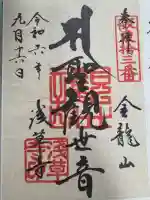 奉拝
坂東十三番
金龍山
聖観世音
浅草寺
令和六年
九月十六日